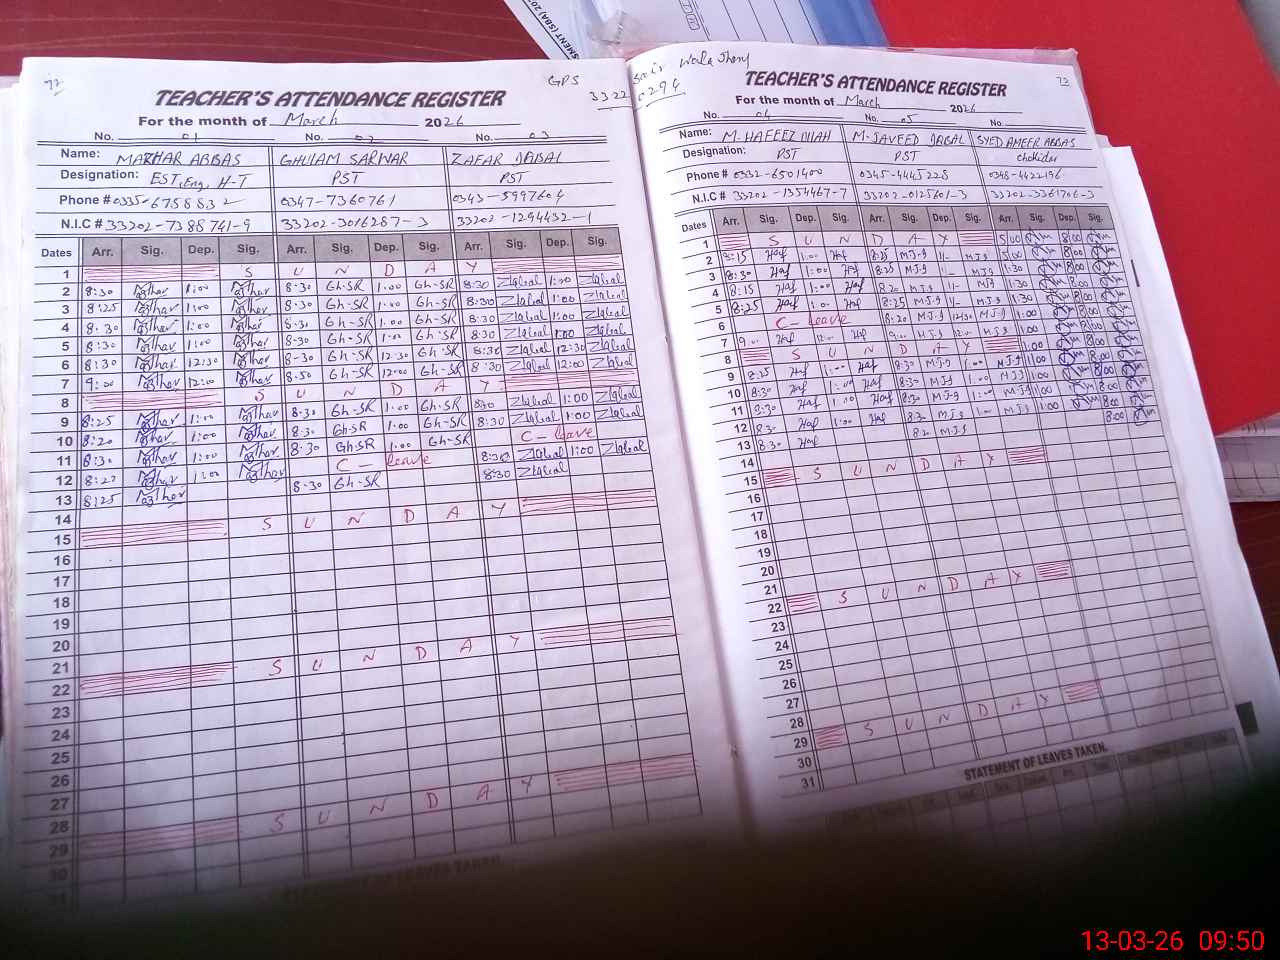 SMENT (SBA) 20
77
GPS
3322
TEACHER'S ATTENDANCE REGISTER
For the month of March 2026
No. 01 No. 02 No. 03
Name: MAZHAR ABBAS GHULAM SARWAR ZAFAR IQBAL
Designation: EST, Eng, H-T PST PST
Phone # 0335-6758832 0347-7360761 0343-5997604
N.I.C # 33202-7388741-9 33202-3016287-3 33202-1294432-1
Dates Arr. Sig. Dep. Sig. Arr. Sig. Dep. Sig. Arr. Sig. Dep. Sig.
1 S U N D A Y
2 8:30 Mazhar 1:00 Mazhar 8-30 Gh-SR 1.00 Gh-SR 8:30 ZIqbal 1:00 ZIqbal
3 8:25 Mazhar 1:00 Mazhar 8-30 Gh-SR 1.00 Gh-SR 8:30 ZIqbal 1:00 ZIqbal
4 8:30 Mazhar 1:00 Mazhar 8-30 Gh-SR 1.00 Gh-SR 8:30 ZIqbal 1:00 ZIqbal
5 8:30 Mazhar 1:00 Mazhar 8-30 Gh-SR 1.00 Gh-SR 8:30 ZIqbal 1:00 ZIqbal
6 8:30 Mazhar 12:30 Mazhar 8-30 Gh-SR 12-30 Gh-SR 8:30 ZIqbal 12:30 ZIqbal
7 9:00 Mazhar 12:00 Mazhar 8-50 Gh-SR 12:00 Gh-SR 8:30 ZIqbal 12:00 ZIqbal
8 S U N D A Y
9 8:25 Mazhar 1:00 Mazhar 8-30 Gh-SR 1.00 Gh-SR 8:30 ZIqbal 1:00 ZIqbal
10 8:20 Mazhar 1:00 Mazhar 8-30 Gh-SR 1.00 Gh-SR 8:30 ZIqbal 1:00 ZIqbal
11 8:30 Mazhar 1:00 Mazhar 8-30 Gh-SR 1.00 Gh-SR C-leave
12 8:22 Mazhar 1:00 Mazhar C-leave 8:30 ZIqbal 1:00 ZIqbal
13 8:25 Mazhar 8-30 Gh-SR 8:30 ZIqbal
14
15 S U N D A Y
16
17
18
19
20
21
22 S U N D A Y
23
24
25
26
27
28
29 S U N D A Y
30
31
73
TEACHER'S ATTENDANCE REGISTER
For the month of March 2026
No. 04 No. 05 No.
Name: M. HAFEEZ ULLAH M. JAVEED IQBAL SYED AMEER ABBAS
Designation: PST PST Chokidar
Phone # 0332-6501400 0345-4445228 0348-4422196
N.I.C # 33202-1354467-7 33202-0125601-3 33202-3361706-3
Dates Arr. Sig. Dep. Sig. Arr. Sig. Dep. Sig. Arr. Sig. Dep. Sig.
1 S U N D A Y 5:00 8:00
2 8:15 Haf 1:00 Haf 8:25 M-J-9 1/- M-J-9 5:00 8:00
3 8:30 Haf 1:00 Haf 8:25 M-J-9 1/- M-J-9 1:30 8:00
4 8:15 Haf 1:00 Haf 8:20 M-J-9 1/- M-J-9 1:30 8:00
5 8:25 Haf 1:00 Haf 8:25 M-J-9 1/- M-J-9 1:30 8:00
6 C-leave 8:20 M-J-9 12:30 M-J-9 1:00 8:00
7 9:00 Haf 12:00 Haf 9:00 M-J-9 12:00 M-J-9 1:00 8:00
8 S U N D A Y 1:00 8:00
9 8:25 Haf 1:00 Haf 8:30 M-J-9 1:00 M-J-9 1:00 8:00
10 8:30 Haf 1:00 Haf 8:30 M-J-9 1:00 M-J-9 1:00 8:00
11 8:30 Haf 1:00 Haf 8:30 M-J-9 1:00 M-J-9 1:00 8:00
12 8:30 Haf 1:00 Haf 8:30 M-J-9 1:00 M-J-9 1:00 8:00
13 8:30 Haf 8:20 M-J-9 8:00
14
15 S U N D A Y
16
17
18
19
20
21
22 S U N D A Y
23
24
25
26
27
28
29 S U N D A Y
30
31
STATEMENT OF LEAVES TAKEN.
13-03-26 09:50